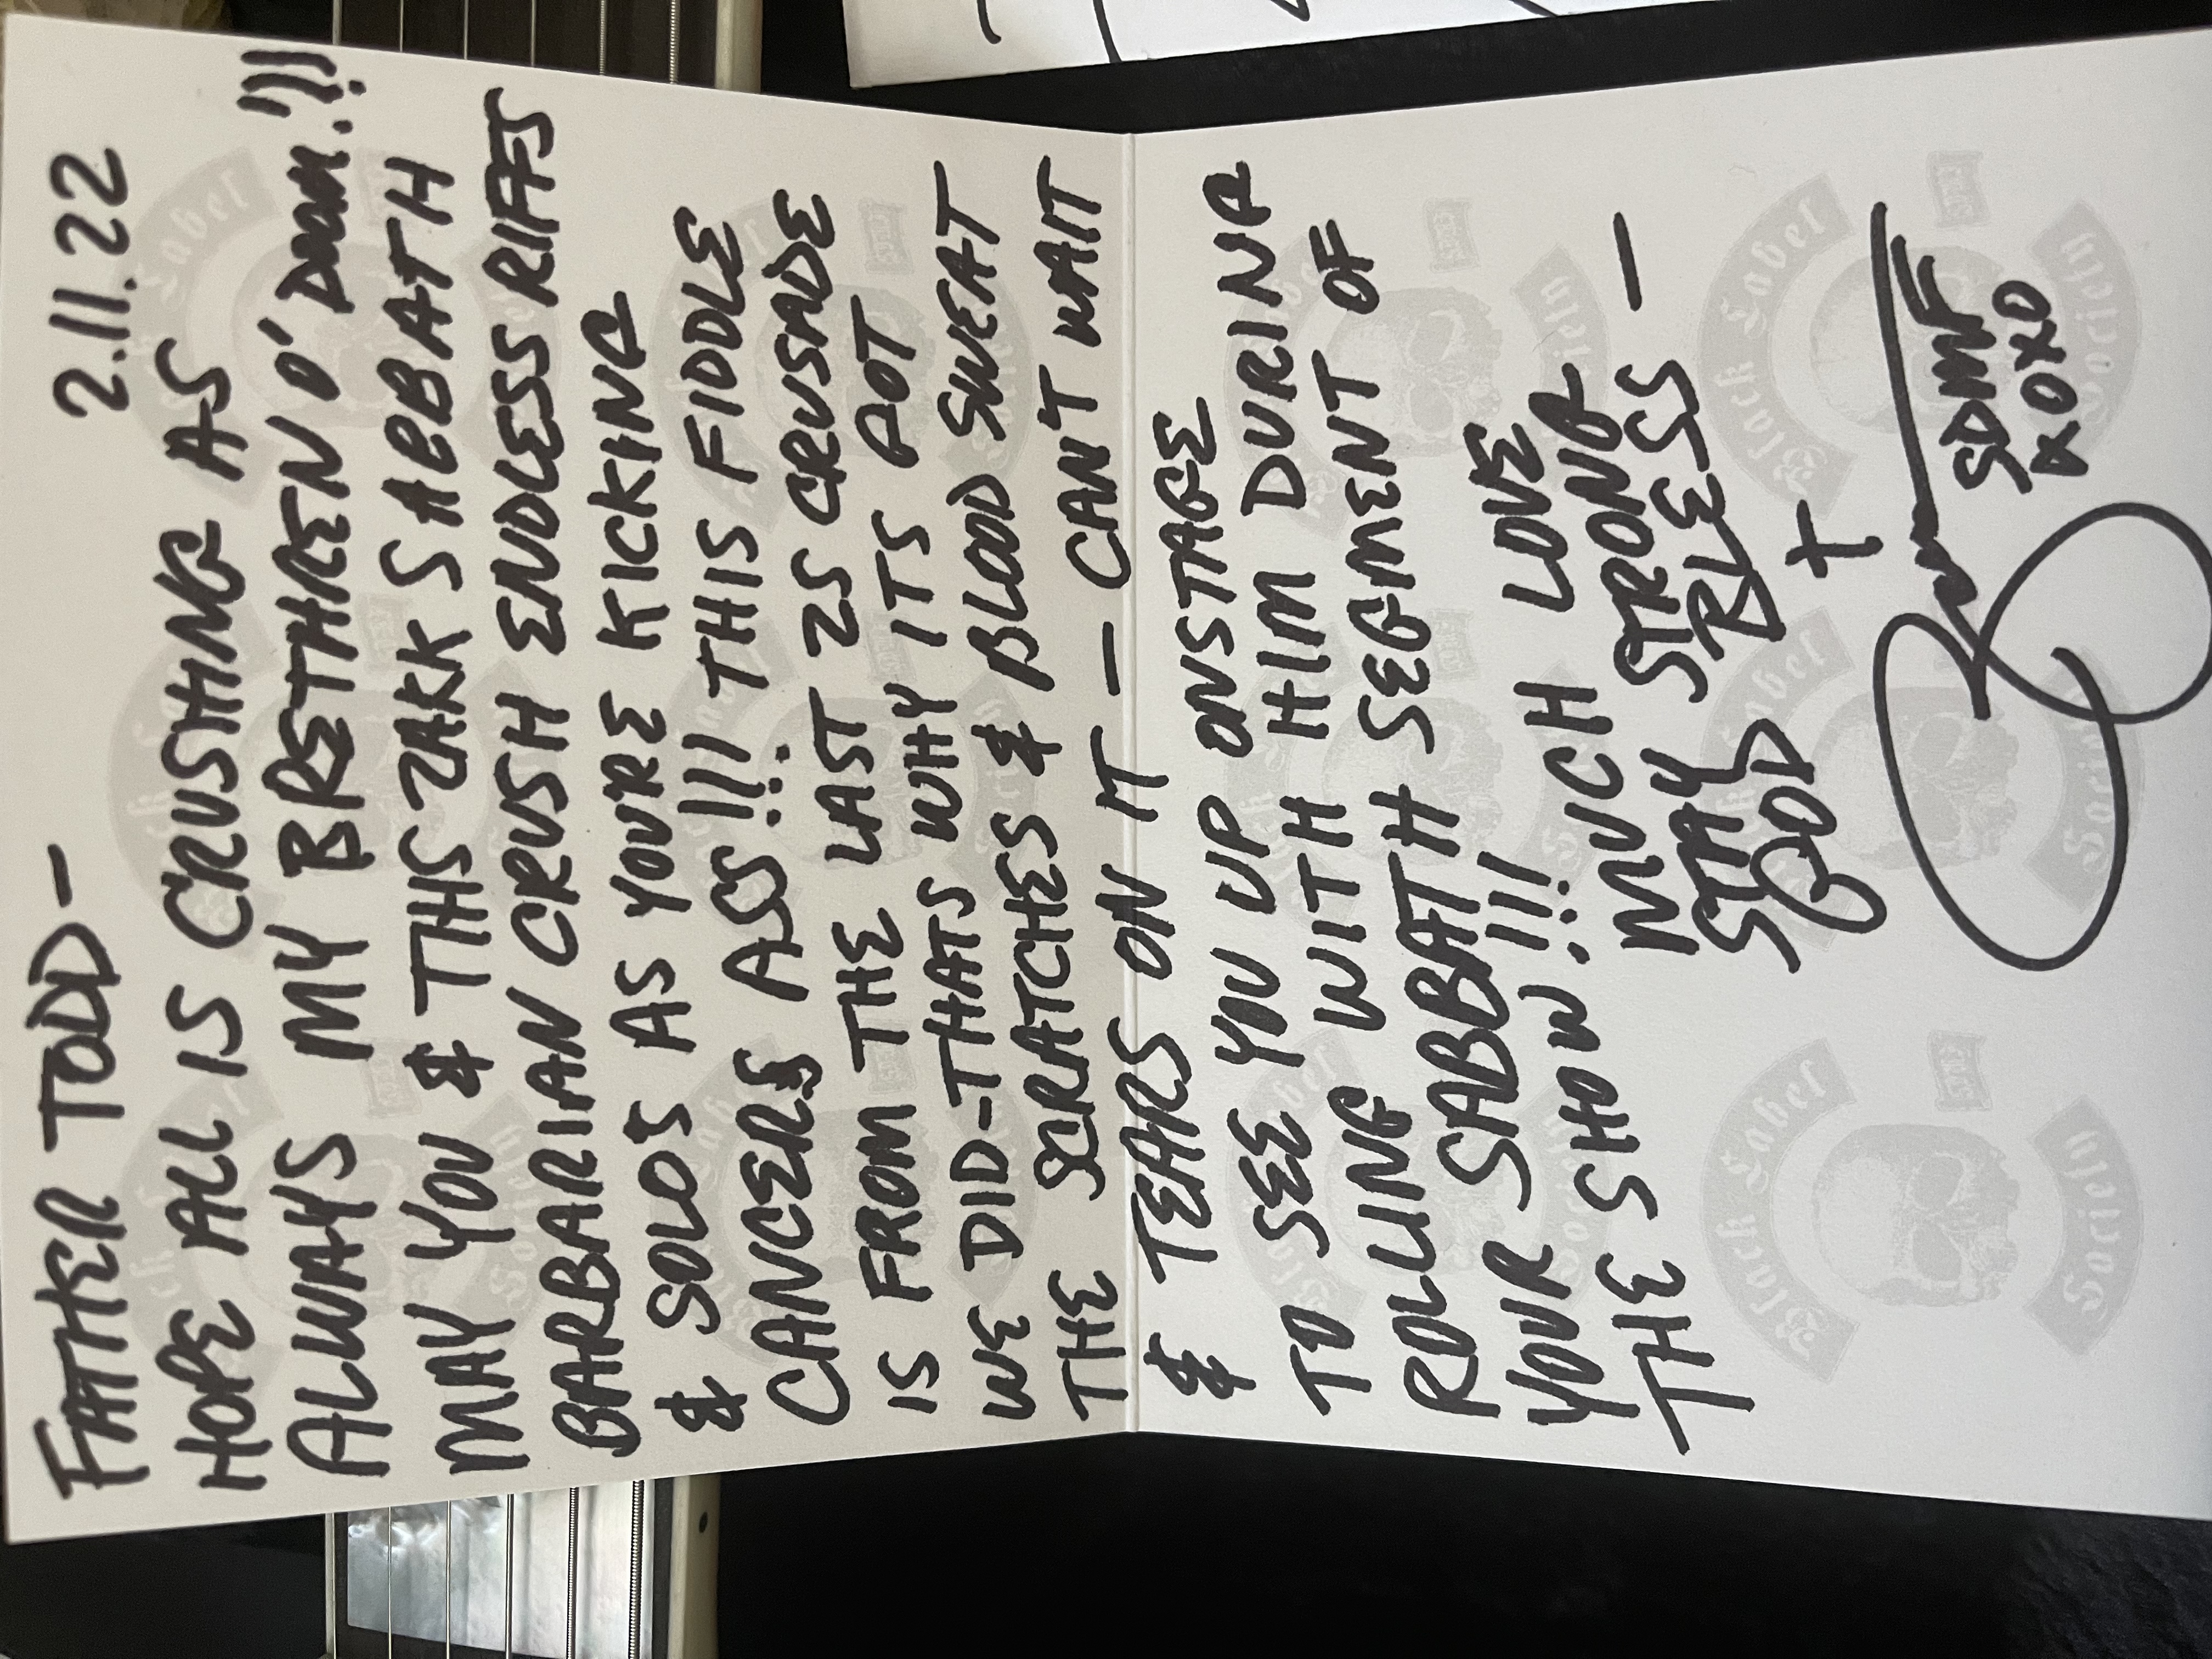 FATHER TODD— 2.11.22
HOPE ALL IS CRUSHING AS
ALWAYS MY BRETHREN O' DOOM.!!!
MAY YOU & THIS ZAKK SABBATH
BARBARIAN CRUSH ENDLESS RIFFS
& SOLO'S AS YOU'RE KICKING
CANCERS ASS!!! THIS FIDDLE
IS FROM THE LAST ZS CRUSADE
WE DID-THATS WHY ITS GOT
THE SCRATCHES & BLOOD SWEAT
& TEARS ON IT — CAN'T WAIT
TO SEE YOU UP ONSTAGE
ROLLING WITH HIM DURING
YOUR SABBATH SEGMENT OF
THE SHOW!!!
MUCH LOVE
STAY STRONG
GOD BLESS —
SDMF
XOXO
Black Label
Society